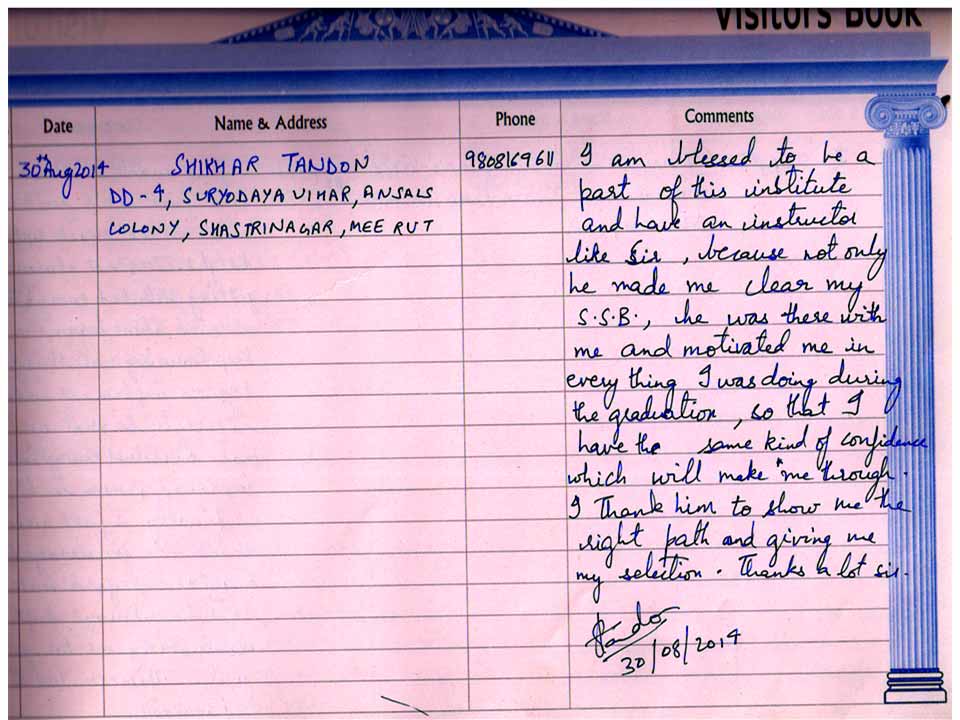 Visitors Book
Date Name & Address Phone Comments
30th Aug 2014 SHIKHAR TANDON 9808169611 I am blessed to be a
DD-4, SURYODAYA VIHAR, ANSALS part of this institute
COLONY, SHASTRINAGAR, MEERUT and have an instructor
like Sir, because not only
he made me clear my
S.S.B., he was there with
me and motivated me in
every thing I was doing during
the graduation, so that I
have the same kind of confidence
which will make me through.
I Thank him to show me the
right path and giving me
my selection. Thanks a lot sir.
Tandon
30/08/2014